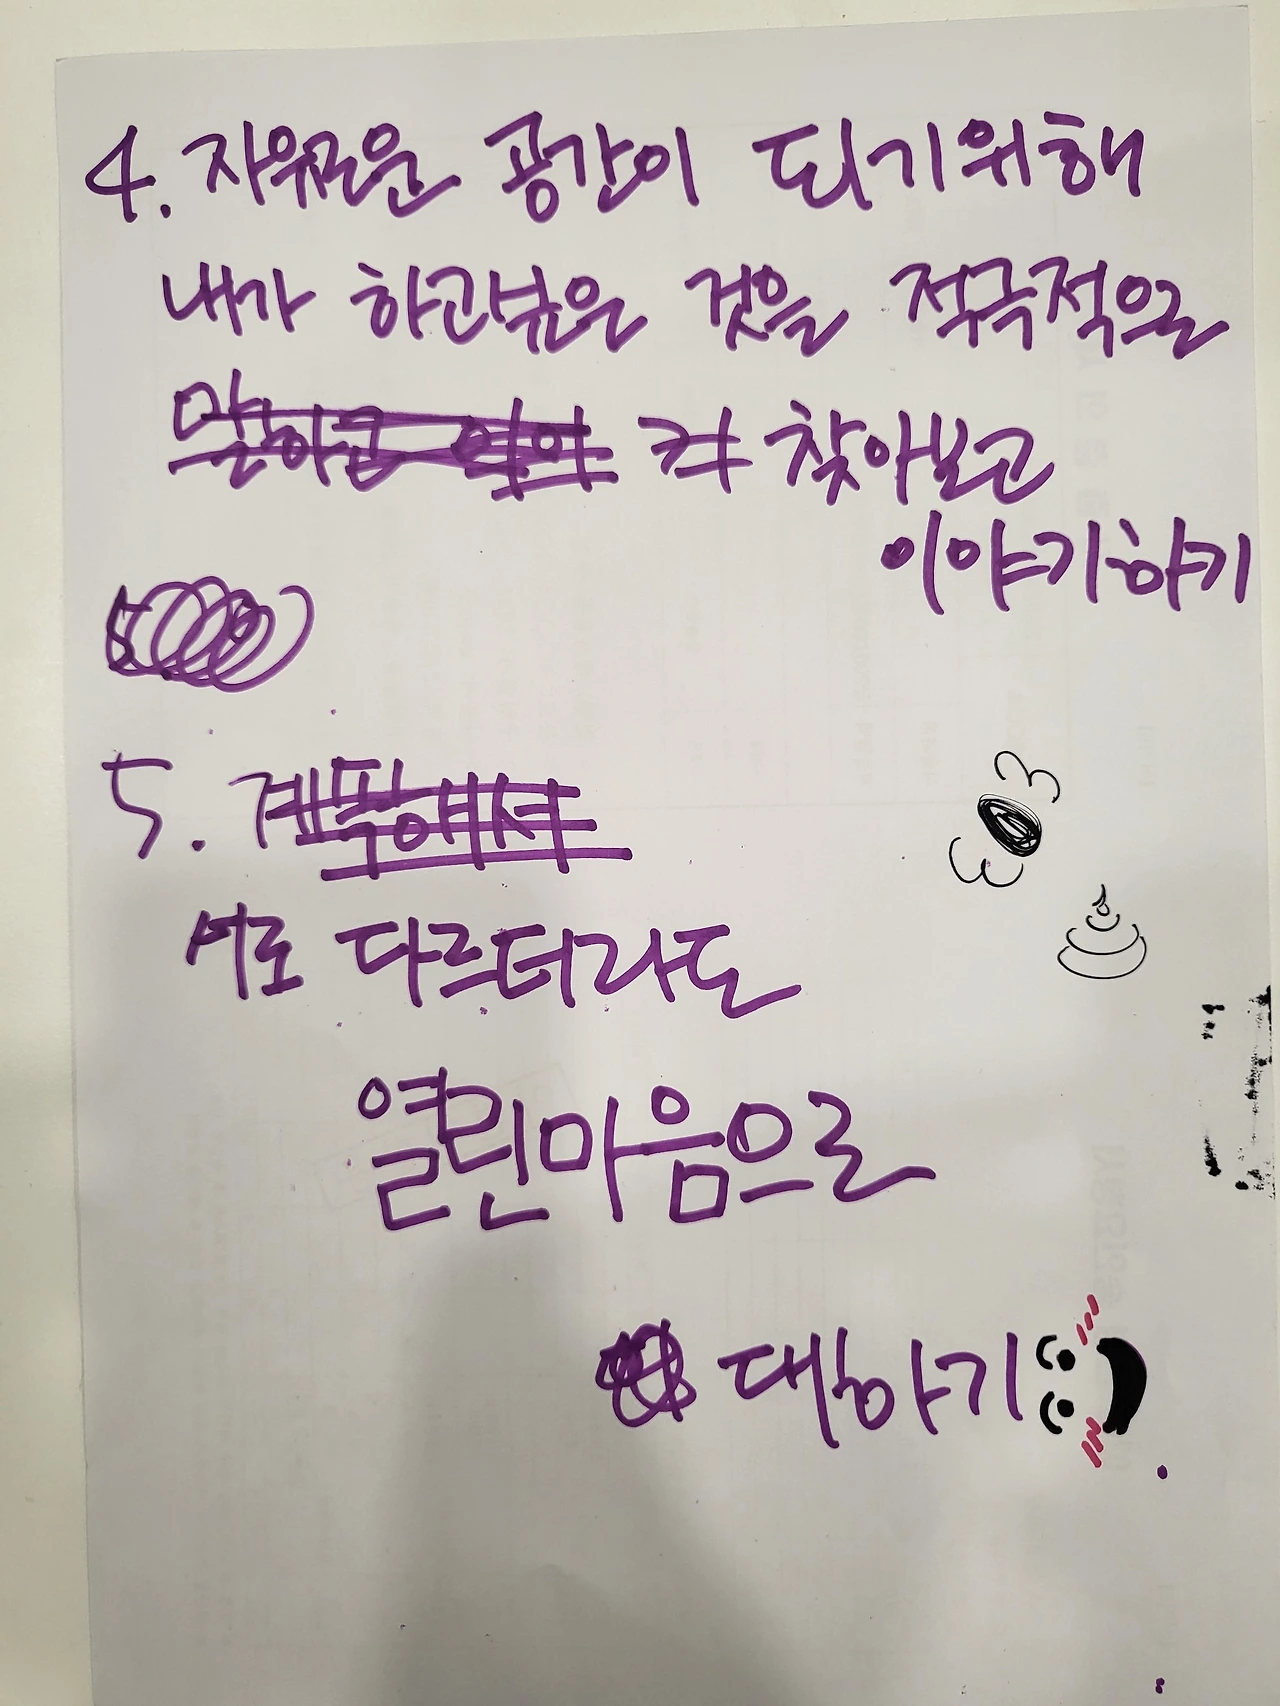 4. 자유로운 공간이 되기위해
내가 하고싶은 것을 적극적으로
찾아보고
이야기하기
5.
서로 다르더라도
열린마음으로
대하기